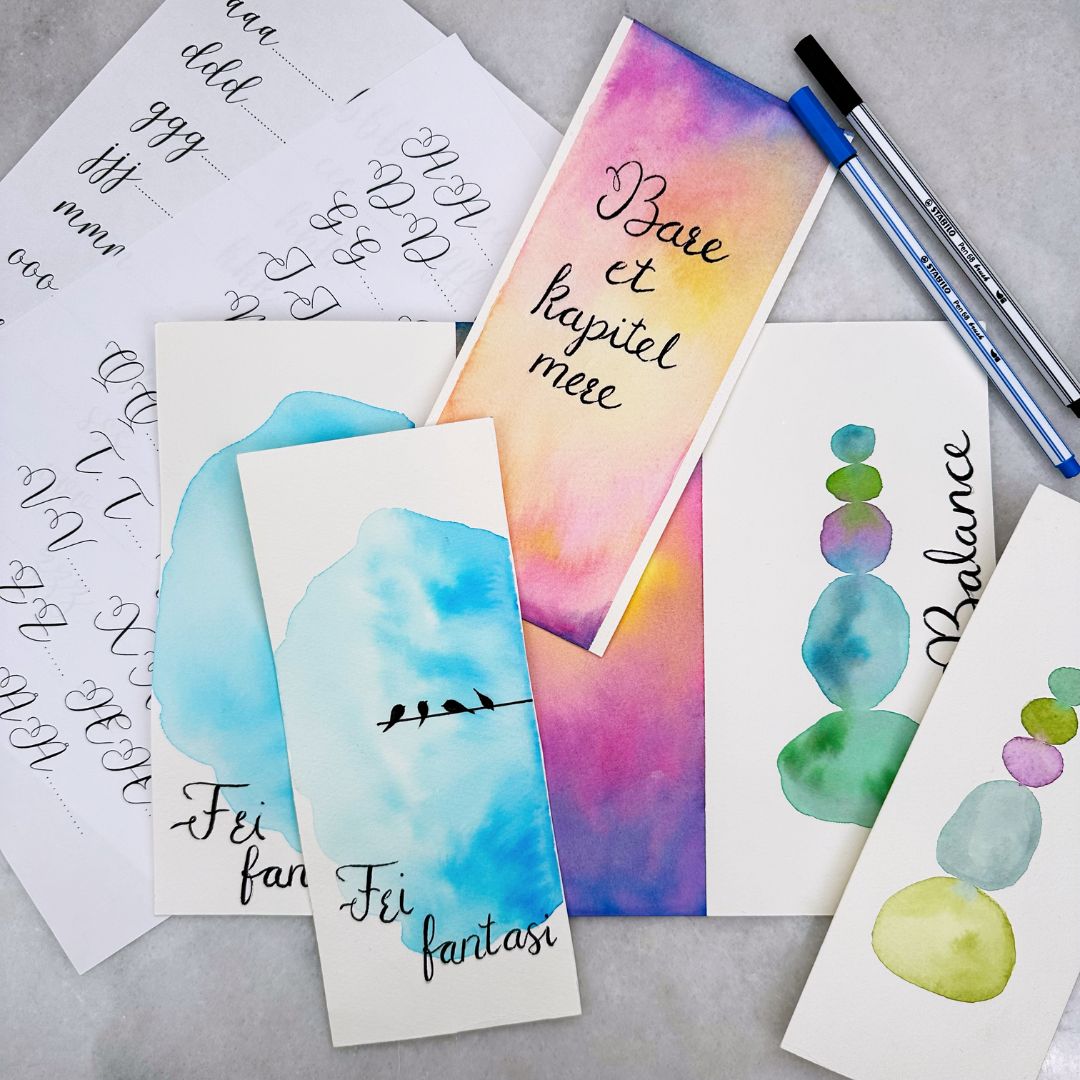 aaa
ddd
ggg
jjj
mmm
ooo
A A
D D
G G
Q Q
T T
Bare
et
kapitel
mere
STABILO Pen 68 brush
STABILO Pen 68 brush
Balance
Fri
fan
Fri
fantasi